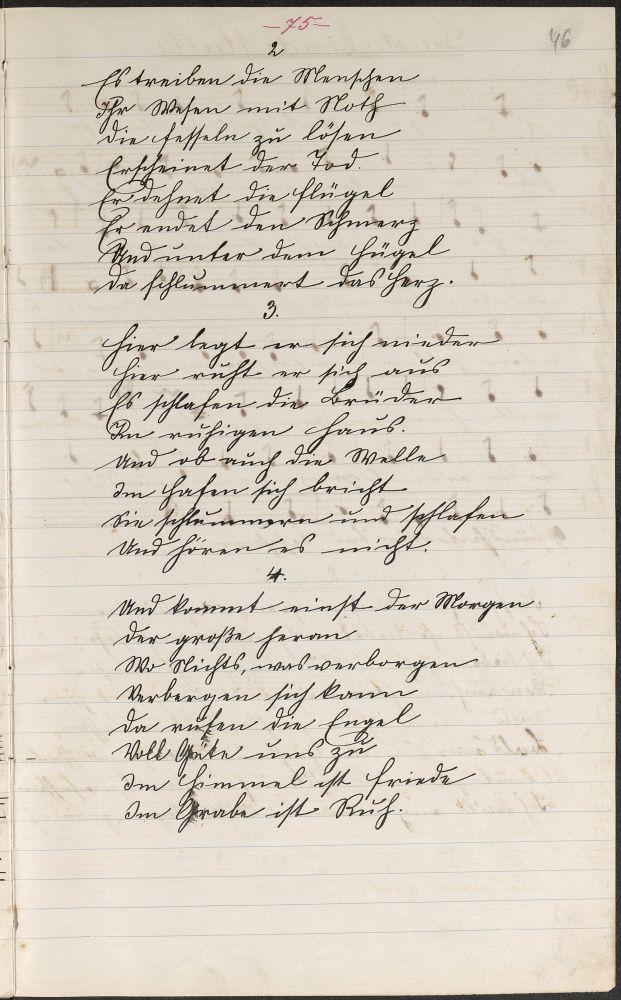 —75—
46
2
Es treiben die Menschen
Ihr Wesen mit Noth
Die Fesseln zu lösen
Erscheinet der Tod.
Er dehnet die Flügel
Er endet den Schmerz
Und unter dem Hügel
Da schlummert das Herz.
3.
Hier legt er sich nieder
Hier ruht er sich aus
Es schlafen die Brüder
Im ruhigen Haus.
Und ob auch die Welle
Im Hafen sich bricht
Sie schlummern und schlafen
Und hören es nicht.
4.
Und kommt einst der Morgen
Der große heran
Wo Nichts, was verborgen
Verbergen sich kann
Da rufen die Engel
Voll Güte uns zu
Im Himmel ist Friede
Im Grabe ist Ruh.